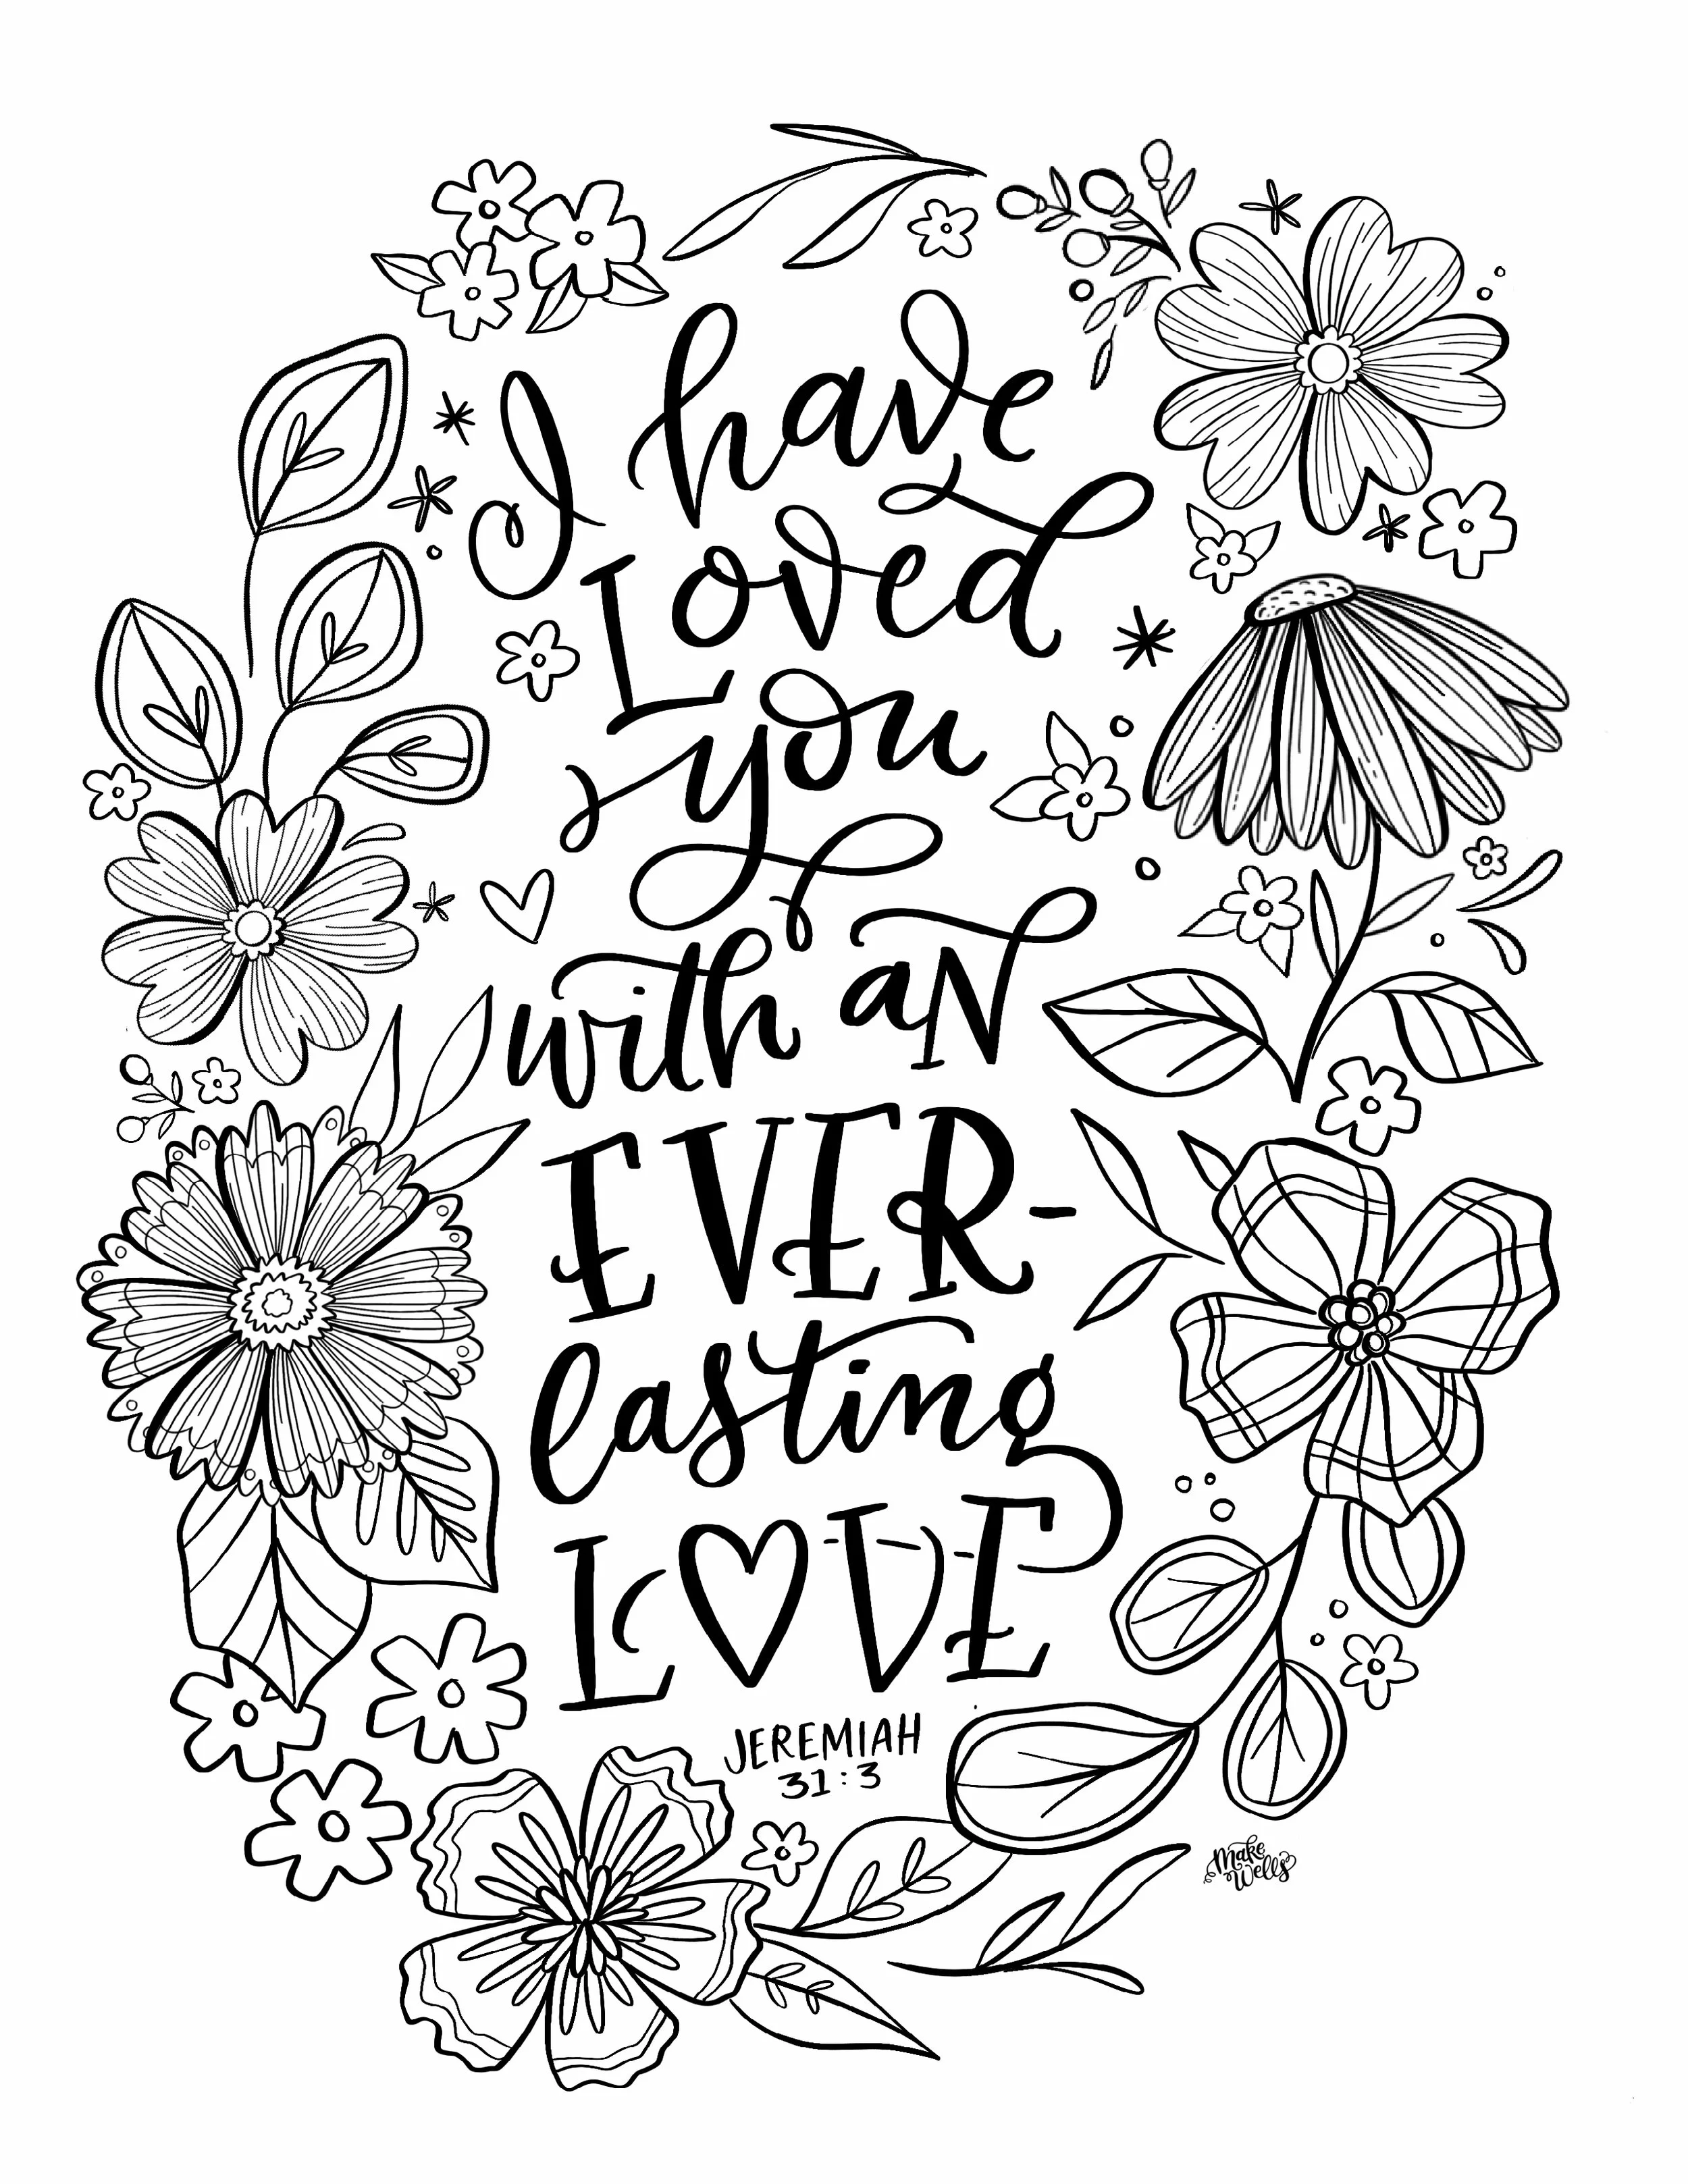 I have
Loved
you
with aN
EVER-
lasting
LOVE
JEREMIAH
31:3
Make
Wells